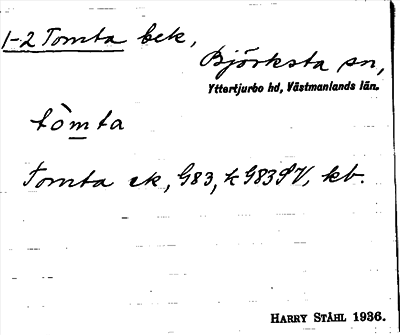 1-2 Tomta bek,
Björksta sn,
Yttertjurbo hd, Västmanlands län.
tòmta
Tomta ek, G83, k G83SV, kb.
HARRY STÅHL 1936.